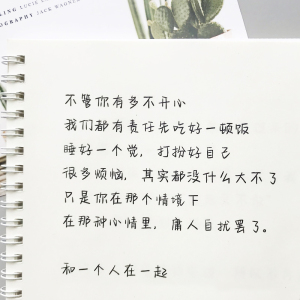 KING LUCIA
OGRAPHY JACK WAGNER
不管你有多不开心
我们都有责任先吃好一顿饭
睡好一个觉，打扮好自己
很多烦恼，其实都没什么大不了
只是你在那个情境下
在那种心情里，庸人自扰罢了。
和一个人在一起